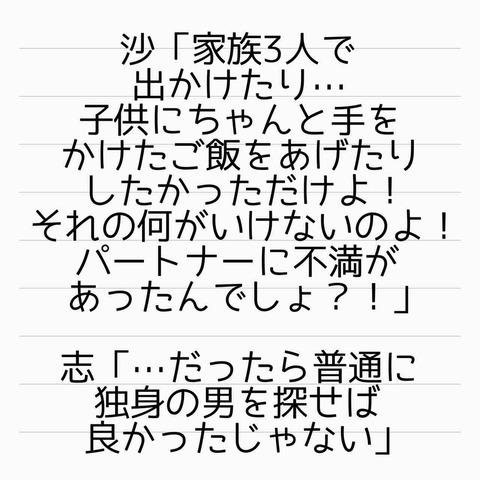 沙「家族3人で
出かけたり…
子供にちゃんと手を
かけたご飯をあげたり
したかっただけよ！
それの何がいけないのよ！
パートナーに不満が
あったんでしょ？！」
志「…だったら普通に
独身の男を探せば
良かったじゃない」